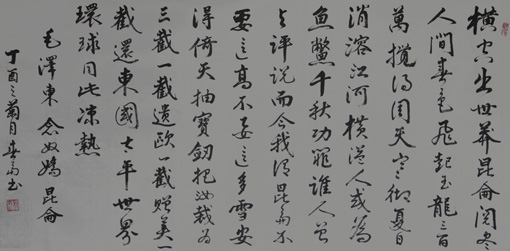 橫空出世莽昆侖閱盡
人間春色飛起玉龍三百
萬攪得周天寒徹夏日
消溶江河橫溢人或為
魚鱉千秋功罪誰人曾
与評說而今我謂昆侖不
要這高不要這多雪安
得倚天抽寶劍把汝裁為
三截一截遺歐一截贈美一
截還東國太平世界
環球同此涼熱
毛澤東念奴嬌昆侖
丁酉之菊月春